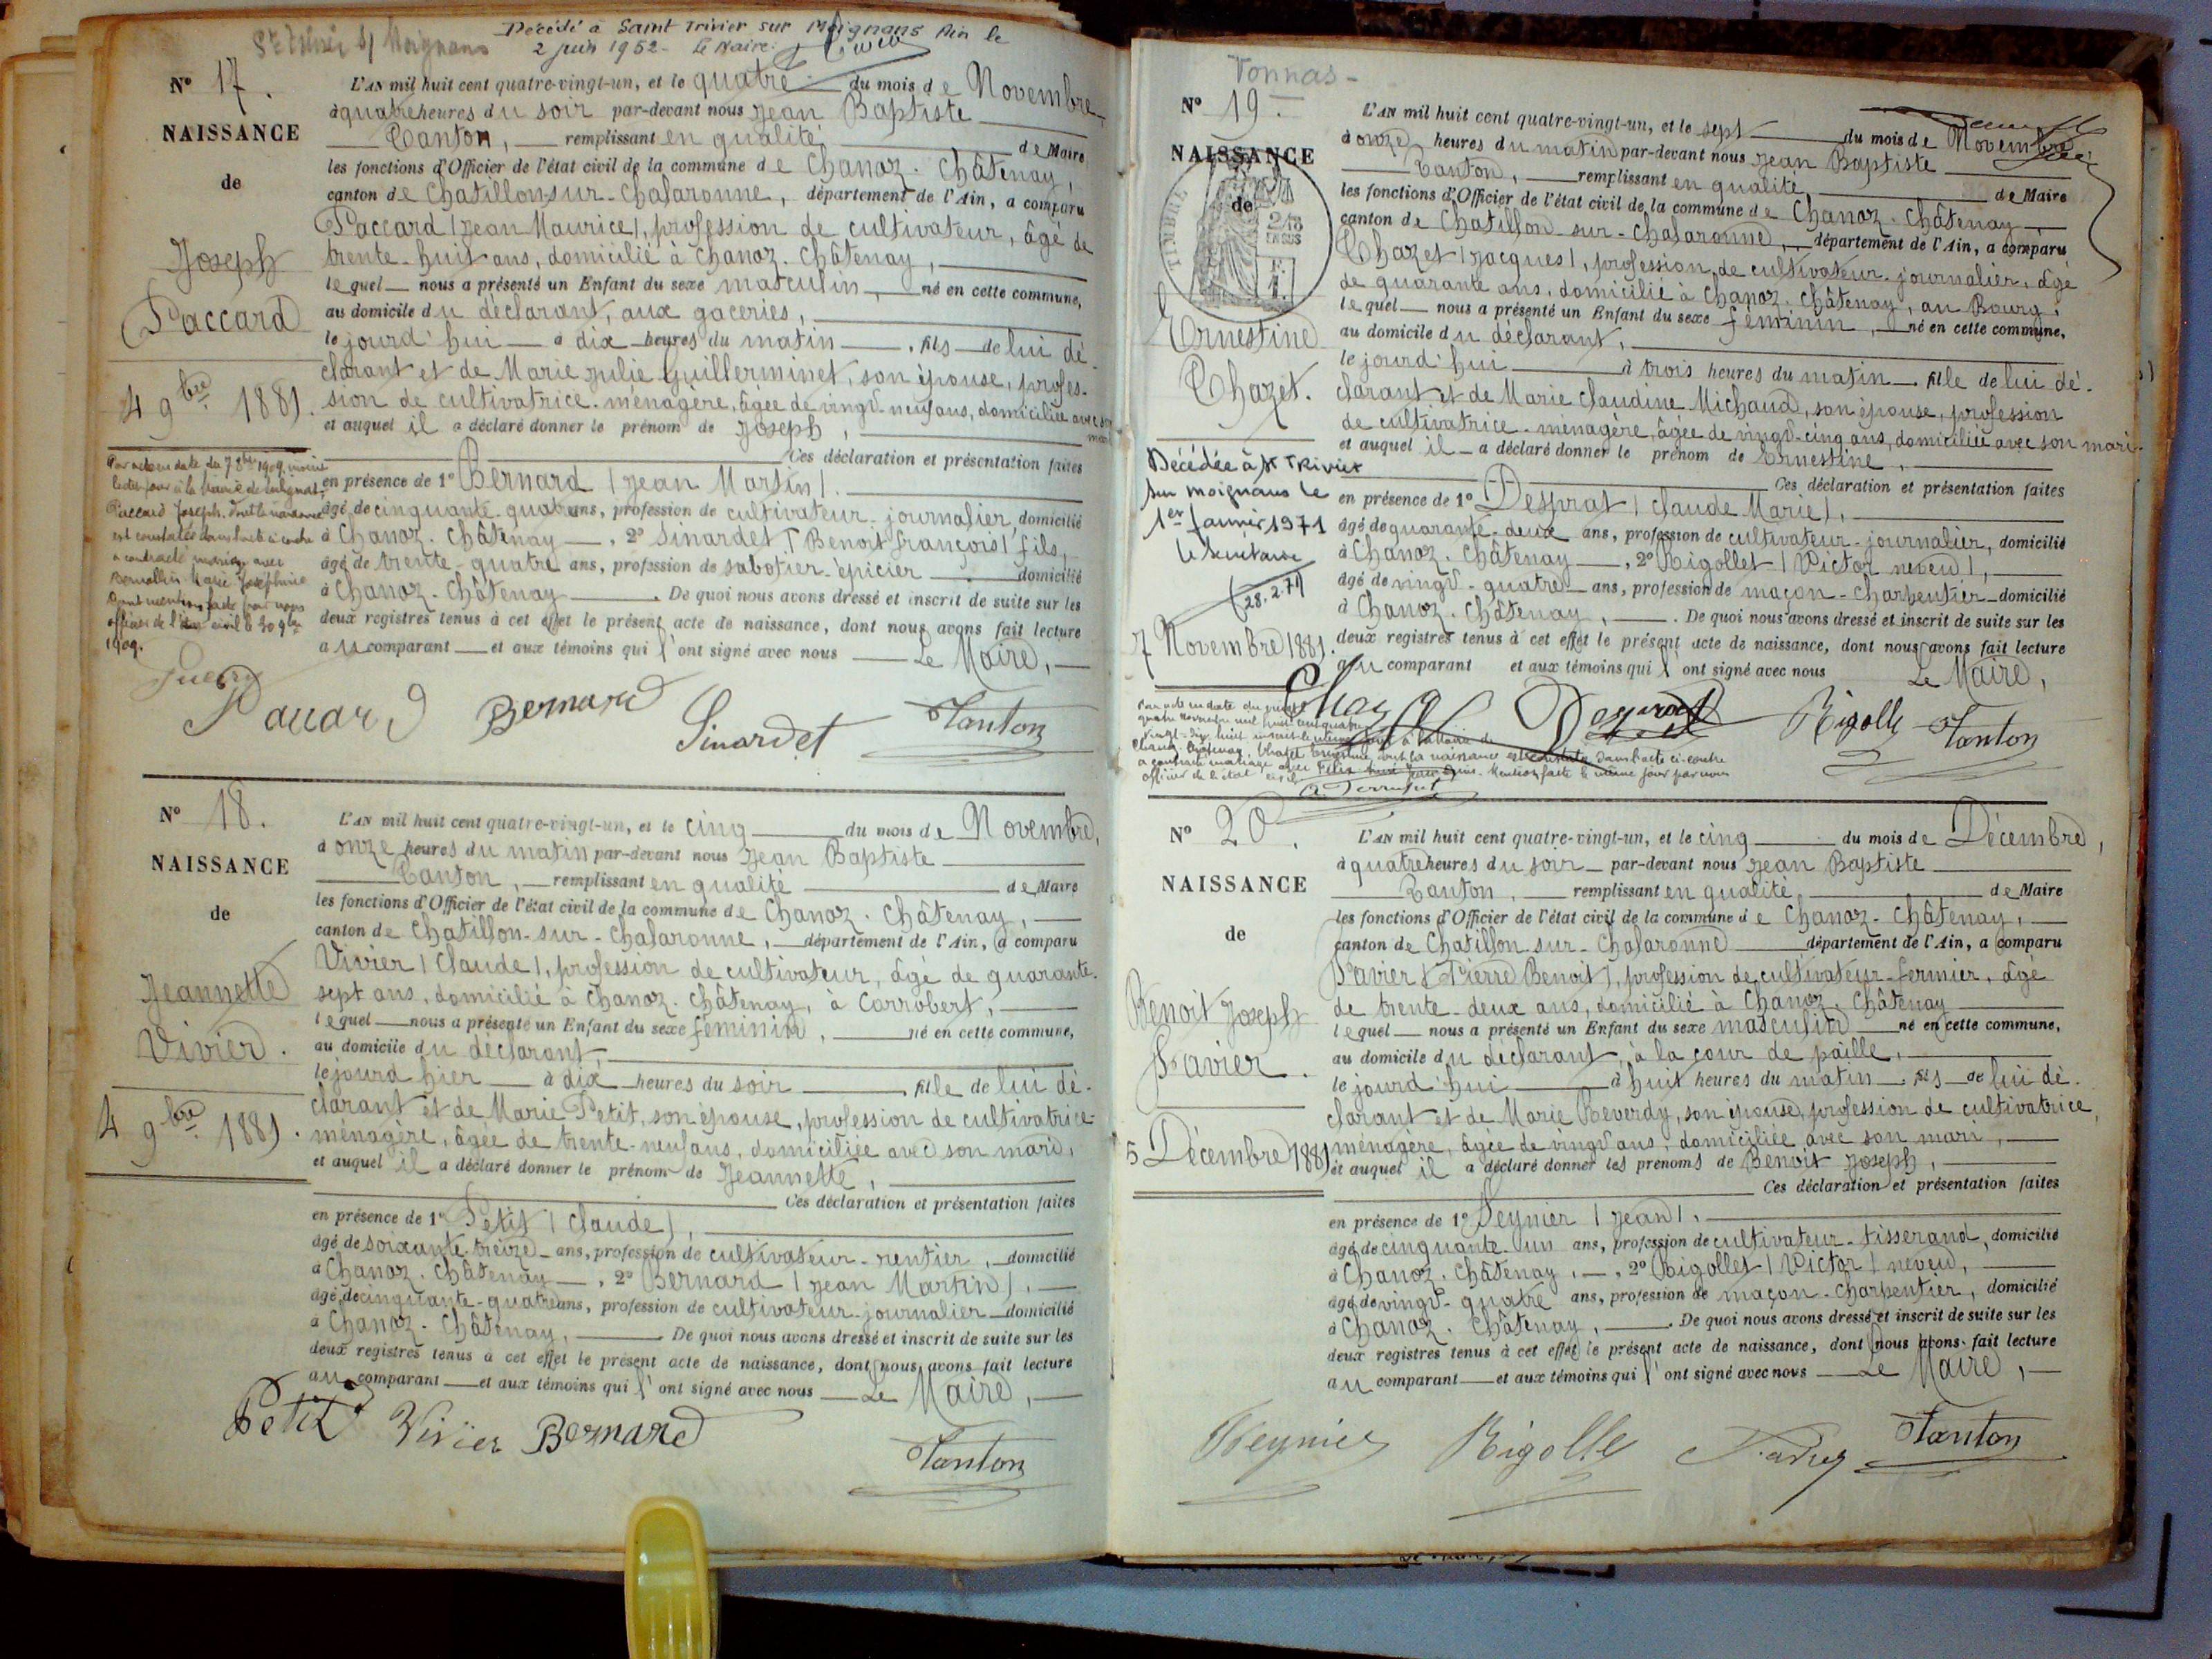 Décédé à Saint Trivier sur Moignans Ain le
2 juin 1952 - Le Maire.
St Trivier s/ Moignans
N° 17.
NAISSANCE
de
Joseph
Paccard
4 9bre 1881.
L'AN mil huit cent quatre-vingt-un, et le quatre du mois de Novembre,
à quatre heures du soir par-devant nous Jean Baptiste
Tanton, remplissant en qualité de Maire
les fonctions d'Officier de l'état civil de la commune de Chanoz-Châtenay,
canton de Chatillon-sur-Chalaronne, département de l'Ain, a comparu
Paccard (Jean Maurice), profession de cultivateur, âgé de
trente-huit ans, domicilié à Chanoz-Châtenay,
lequel nous a présenté un Enfant du sexe masculin, né en cette commune,
au domicile du déclarant, aux gaceries,
le jourd'hui à dix heures du matin, fils de lui dé-
clarant et de Marie Julie Guillerminet, son épouse, profes-
sion de cultivatrice-ménagère, âgée de vingt-neuf ans, domiciliée avec son mari
et auquel il a déclaré donner le prénom de Joseph,
Ces déclaration et présentation faites
en présence de 1° Bernard (Jean Martin),
âgé de cinquante-quatre ans, profession de cultivateur-journalier, domicilié
à Chanoz-Châtenay, 2° Sinardet (Benoit François) fils,
âgé de trente-quatre ans, profession de sabotier-épicier domicilié
à Chanoz-Châtenay. De quoi nous avons dressé et inscrit de suite sur les
deux registres tenus à cet effet le présent acte de naissance, dont nous avons fait lecture
au comparant et aux témoins qui l'ont signé avec nous Le Maire,
Par acte en date du 7 8bre 1909, inscrit
Paccard Joseph, dont la naissance
est constatée dans l'acte ci-contre
a contracté mariage avec
Marie Joséphine
Dont mention faite par nous
officier de l'état civil le 30 9bre
1909.
Pacard Bernard Sinardet Tanton
N° 18.
NAISSANCE
de
Jeannette
Vivier.
4 9bre 1881.
L'AN mil huit cent quatre-vingt-un, et le cinq du mois de Novembre,
à onze heures du matin par-devant nous Jean Baptiste
Tanton, remplissant en qualité de Maire
les fonctions d'Officier de l'état civil de la commune de Chanoz-Châtenay,
canton de Chatillon-sur-Chalaronne, département de l'Ain, a comparu
Vivier (Claude), profession de cultivateur, âgé de quarante-
sept ans, domicilié à Chanoz-Châtenay, à Corrobert,
lequel nous a présenté un Enfant du sexe féminin, né en cette commune,
au domicile du déclarant,
le jourd hier à dix heures du soir, fille de lui dé-
clarant et de Marie Petit, son épouse, profession de cultivatrice-
ménagère, âgée de trente-neuf ans, domiciliée avec son mari,
et auquel il a déclaré donner le prénom de Jeannette,
Ces déclaration et présentation faites
en présence de 1° Petit (Claude),
âgé de soixante-treize ans, profession de cultivateur-rentier, domicilié
à Chanoz-Châtenay, 2° Bernard (Jean Martin),
âgé de cinquante-quatre ans, profession de cultivateur-journalier domicilié
à Chanoz-Châtenay, De quoi nous avons dressé et inscrit de suite sur les
deux registres tenus à cet effet le présent acte de naissance, dont nous avons fait lecture
au comparant et aux témoins qui l'ont signé avec nous Le Maire,
Petit Vivier Bernard Tanton
Vonnas-
N° 19.
NAISSANCE
de
TIMBRE
Ernestine
Chazet.
Décédée à St Trivier
sur Moignans le
1er Janvier 1971
le Secrétaire
(28.2.71)
7 Novembre 1881.
L'AN mil huit cent quatre-vingt-un, et le sept du mois de Novembre
à onze heures du matin par-devant nous Jean Baptiste
Tanton, remplissant en qualité de Maire
les fonctions d'Officier de l'état civil de la commune de Chanoz-Châtenay,
canton de Chatillon-sur-Chalaronne, département de l'Ain, a comparu
Chazet (Jacques), profession de cultivateur-journalier, âgé
de quarante ans, domicilié à Chanoz-Châtenay, au Bourg,
lequel nous a présenté un Enfant du sexe féminin, né en cette commune,
au domicile du déclarant,
le jourd'hui à trois heures du matin. fille de lui dé-
clarant et de Marie Claudine Michaud, son épouse, profession
de cultivatrice-ménagère, âgée de vingt-cinq ans, domiciliée avec son mari.
et auquel il a déclaré donner le prénom de Ernestine,
Ces déclaration et présentation faites
en présence de 1° Desprat (Claude Marie),
âgé de quarante-deux ans, profession de cultivateur-journalier, domicilié
à Chanoz-Châtenay, 2° Rigollet (Victor neveu),
âgé de vingt-quatre ans, profession de maçon-charpentier domicilié
à Chanoz-Châtenay, De quoi nous avons dressé et inscrit de suite sur les
deux registres tenus à cet effet le présent acte de naissance, dont nous avons fait lecture
au comparant et aux témoins qui l'ont signé avec nous Le Maire,
Chazet Desprat Rigolle Tanton
Par acte en date du
quatre novembre mil huit cent quatre
vingt-dix-huit
Chanoz-Châtenay, Chazet Ernestine dont la naissance est constatée dans l'acte ci-contre
a contracté mariage avec Félix. Mention faite le même jour par nous
officier de l'état civil
N° 20.
NAISSANCE
de
Benoit Joseph
Favier.
5 Décembre 1881
L'AN mil huit cent quatre-vingt-un, et le cinq du mois de Décembre,
à quatre heures du soir par-devant nous Jean Baptiste
Tanton, remplissant en qualité de Maire
les fonctions d'Officier de l'état civil de la commune de Chanoz-Châtenay,
canton de Chatillon-sur-Chalaronne département de l'Ain, a comparu
Favier (Pierre Benoit), profession de cultivateur-fermier, âgé
de trente-deux ans, domicilié à Chanoz-Châtenay
lequel nous a présenté un Enfant du sexe masculin né en cette commune,
au domicile du déclarant, à la cour de paille,
le jourd'hui à huit heures du matin. fils de lui dé-
clarant et de Marie Reverdy, son épouse, profession de cultivatrice,
ménagère, âgée de vingt ans, domiciliée avec son mari,
et auquel il a déclaré donner les prénoms de Benoit Joseph,
Ces déclaration et présentation faites
en présence de 1° Peynier (Jean),
âgé de cinquante-un ans, profession de cultivateur-tisserand, domicilié
à Chanoz-Châtenay, 2° Rigollet (Victor) neveu,
âgé de vingt-quatre ans, profession de maçon-charpentier, domicilié
à Chanoz-Châtenay, De quoi nous avons dressé et inscrit de suite sur les
deux registres tenus à cet effet le présent acte de naissance, dont nous avons fait lecture
au comparant et aux témoins qui l'ont signé avec nous Le Maire,
Peynier Rigolle Favier Tanton